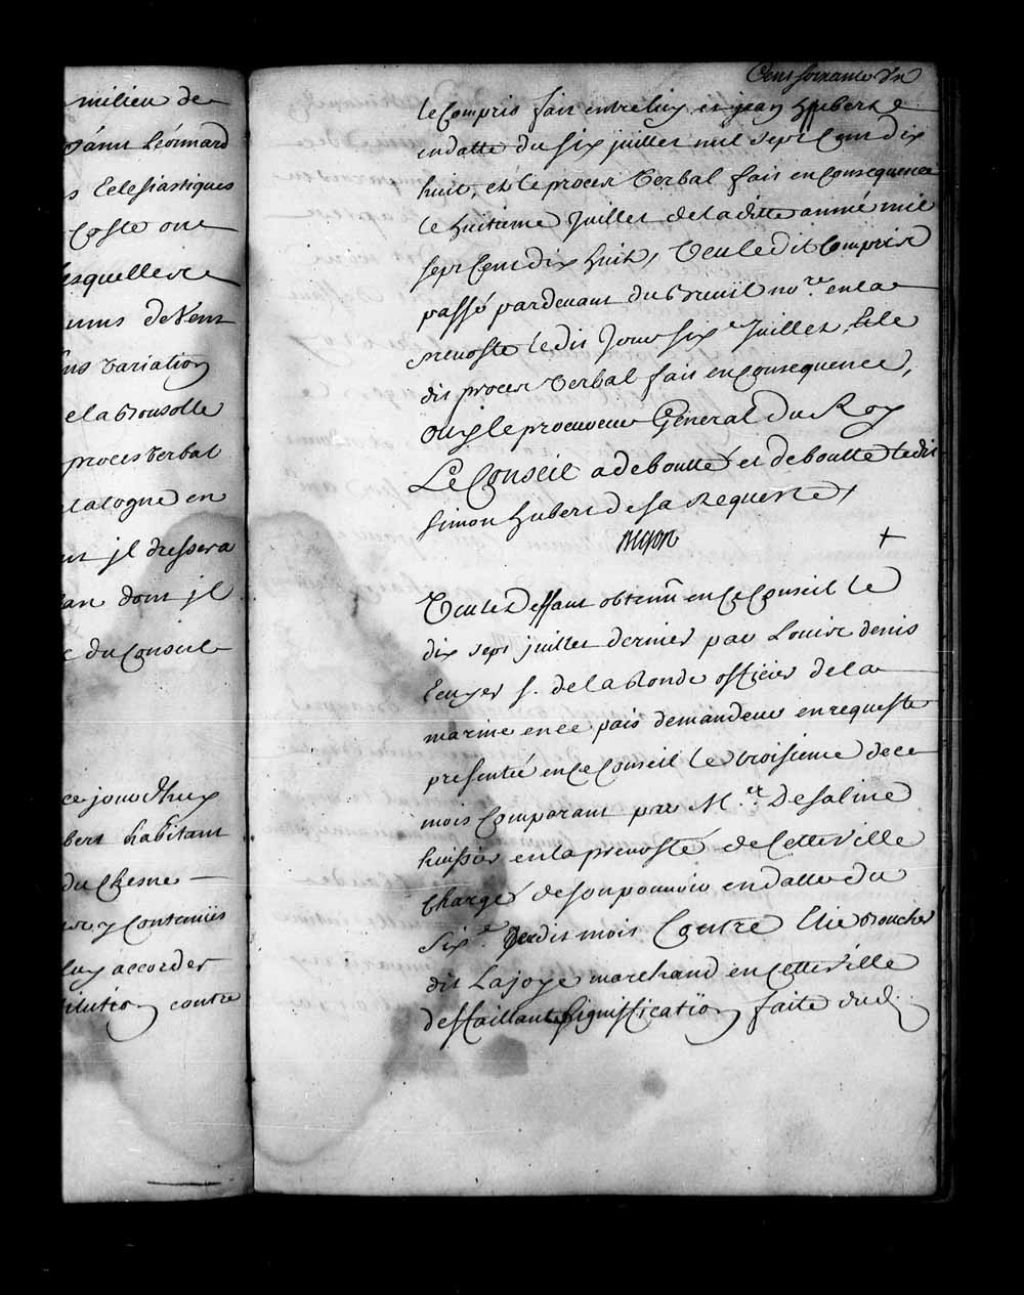 milieu de
Léonnard
s Eclesiastiques
Coste ont
lesquelles
de Vent
variation
procès verbal
en
jl dressera
dont jl
du Conseil
ce jourdhuy
bert habitant
du Chesne
y contenües
luy accorder
contre
Cent soixante dix
le Compris fait entre luy et jean hubert
endatte du six juillet mil sept Cent dix
huit, et le procez verbal fait en Consequence
le huitieme Juillet de la ditte année mil
sept Cent dix huit, Veu ledit Compris
passé pardevant dubreüil no.re en la
prevosté ledit Jour six.e Juillet, et le
dit procez verbal fait en Consequence,
Ouy le procureur General Du Roy
Le Conseil a deboutté et deboutte ledit
Simon hubert de sa Requeste
Begon
+
Veu le Deffaut obtenu en ce Conseil le
dix sept juillet dernier par Louise denis
Ecuyer s. de la Ronde officier de la
marine en ce païs demandeur en requeste
presentée en ce Conseil le troisieme de ce
mois Comparant par M.er Desaline
huissier en la prevosté de Cette Ville
Chargé de son pouvoir en datte du
Six.e dudit mois Contre Elie Boucher
dit Lajoye marchand en cette ville
deffaillant Signiffication faite dud.